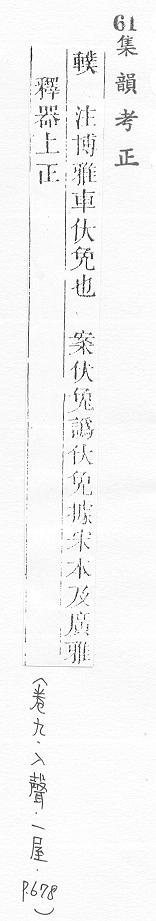 61集韻考正
轐 注博雅車伏免也 案伏兔譌伏免據宋本及廣雅
釋器上正
(卷九.入聲.一屋.P.678)